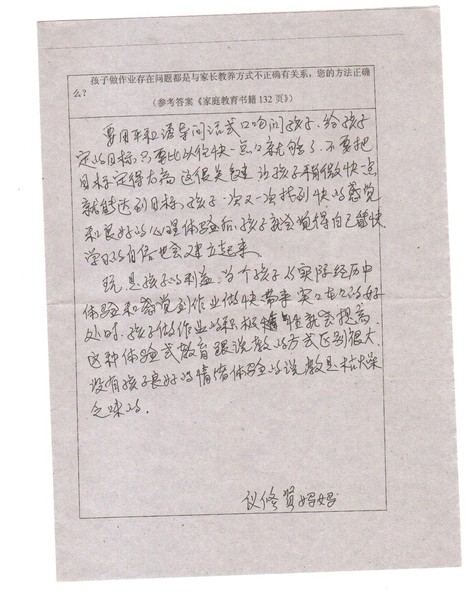 孩子做作业存在问题都是与家长教养方式不正确有关系，您的方法正确
么？
（参考答案《家庭教育书籍 132 页》）
要用平和诱导问话式口吻问孩子，给孩子
定的目标，只要比以往快一点口就够了，不要把
目标定得太高，这很关键，让孩子稍微快一点
就能达到目标，孩子一次又一次找到快的感觉
和良好的心理体验后，孩子就会觉得自己能快
学习的自信也会建立起来。
既是孩子的利益，当个孩子的实际经历中
体验和感觉到作业做快带来实实在在的好
处时，孩子做作业的积极性就会提高，
这种体验式教育跟说教的方式区别很大，
没有孩子良好的情绪体验的说教是枯燥
乏味的。
妈妈